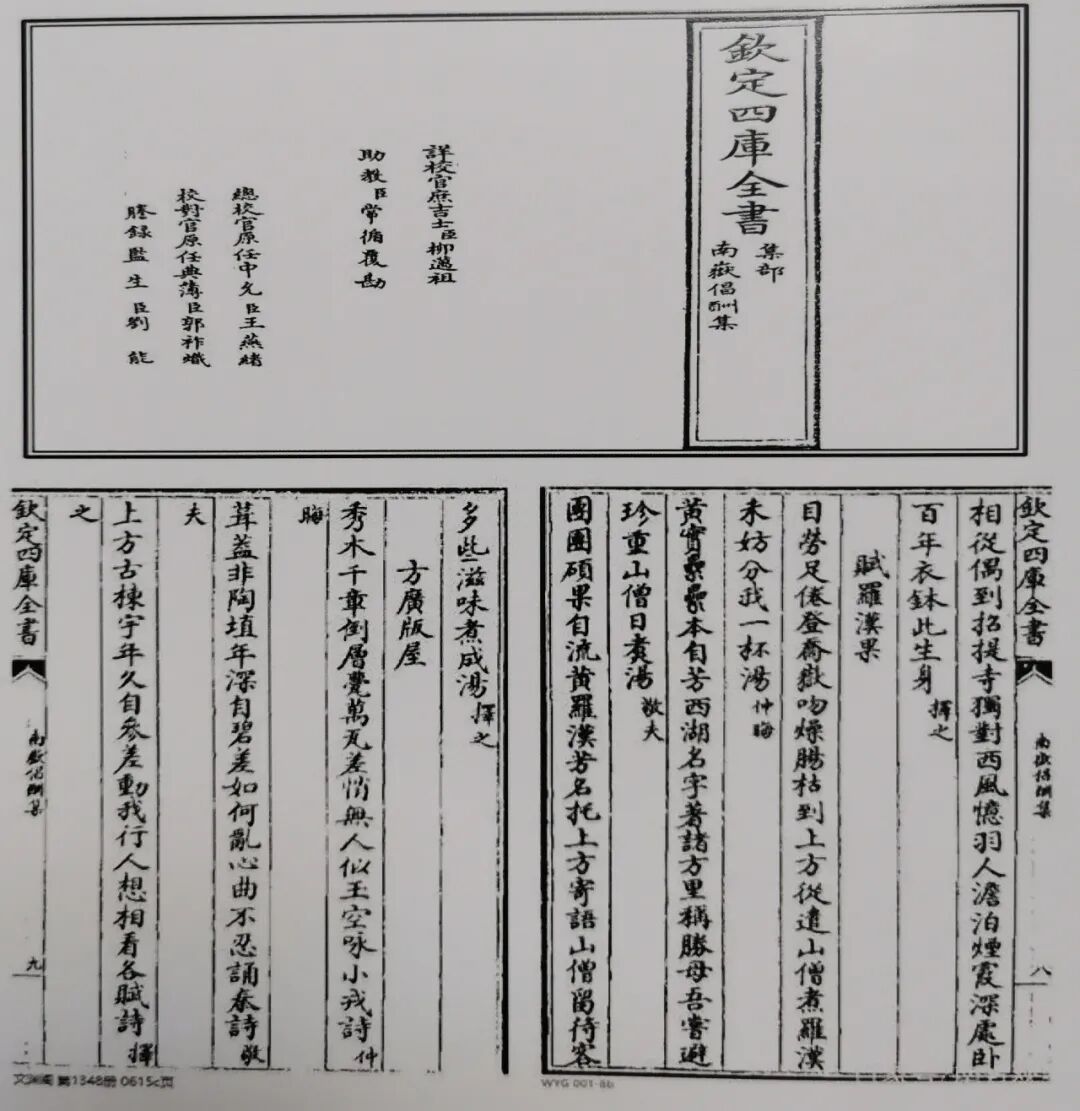 欽定四庫全書
集部
南嶽倡酬集
詳校官庶吉士臣柳邁祖
助教臣常循覆勘
總校官原任中允臣王燕緒
校對官原任典簿臣郭祚熾
謄錄監生臣劉能
欽定四庫全書
南嶽倡酬集
八
相從偶到招提寺獨對西風憶羽人澹泊煙霞深處卧
百年衣鉢此生身 擇之
賦羅漢果
目勞足倦登喬嶽吻燥腸枯到上方從遣山僧煮羅漢
未妨分我一杯湯 仲晦
黃實纍纍本自芳西湖名字著諸方里稱勝母吾常避
珍重山僧日煑湯 敬夫
團團碩果自流黃羅漢芳名托上方寄語山僧留待客
WYG 001-8b
多些滋味煮成湯 擇之
方廣版屋
秀木千章倒層甍萬瓦差悄無人似玉空咏小戎詩 仲
晦
葺蓋非陶埴年深自碧差如何亂心曲不忍誦秦詩 敬
夫
上方古棟宇年久自參差動我行人想相看各賦詩 擇
之
欽定四庫全書
南嶽倡酬集
九
文淵閣 第1348册 0615c页